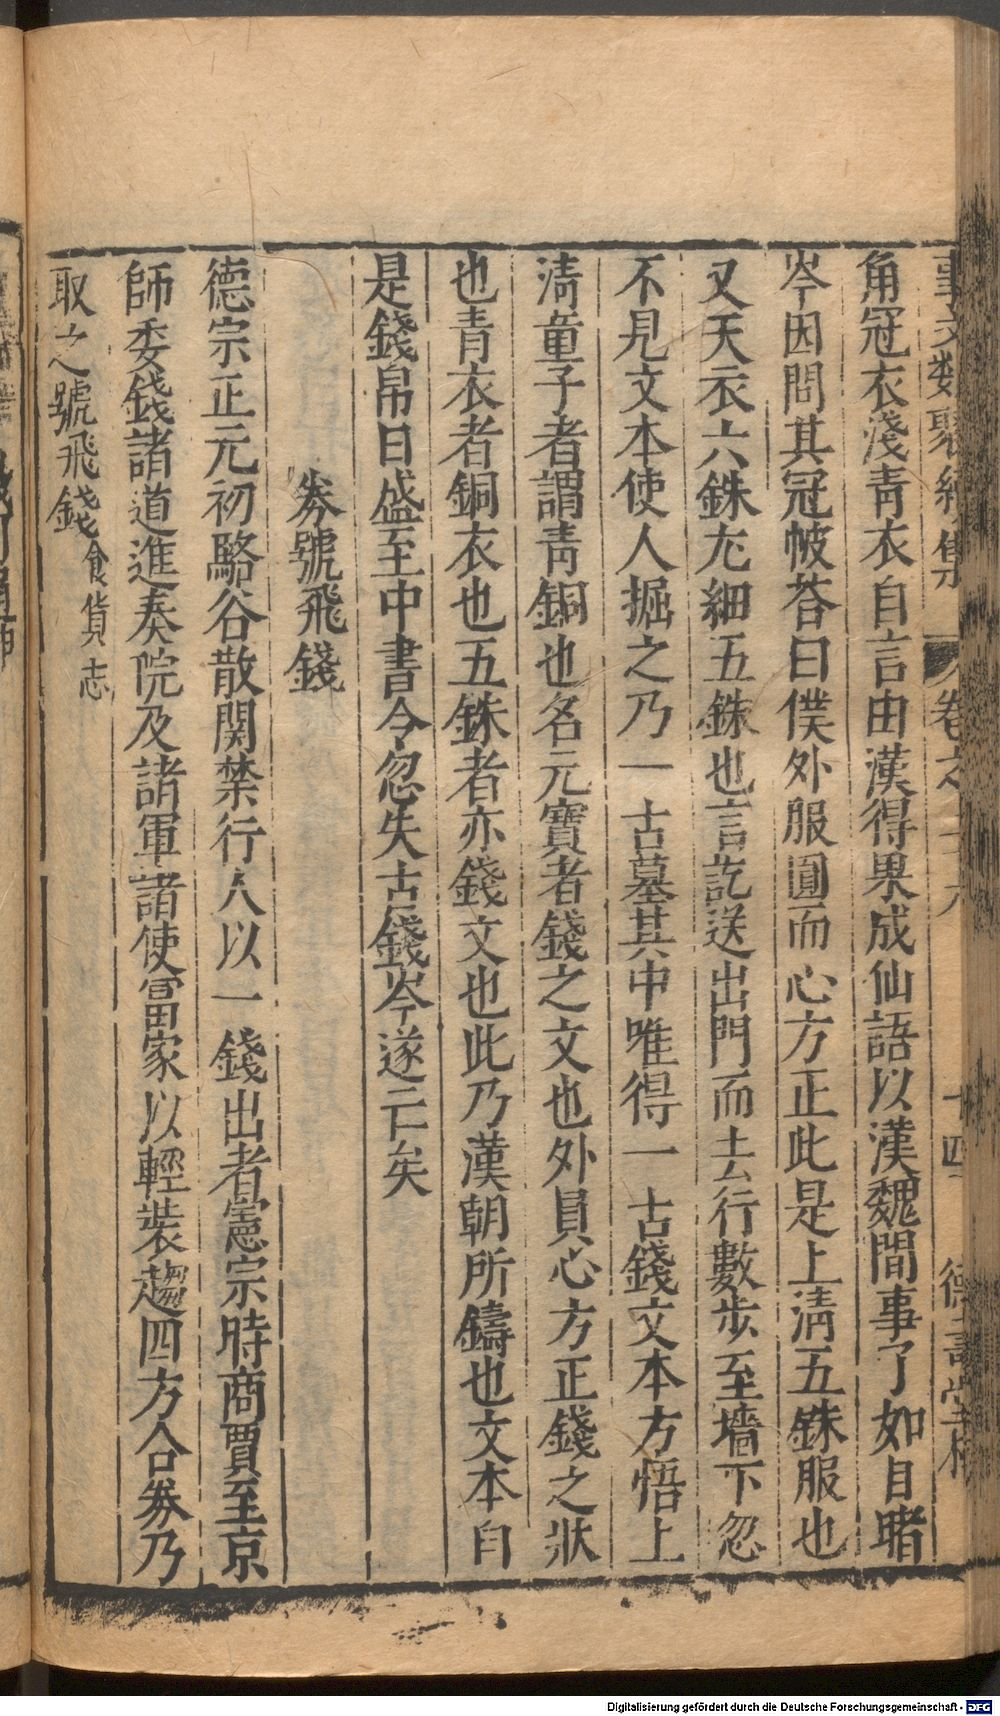 事文類聚續集 卷之二十六 十四 德壽堂梓
角冠衣淺靑衣自言由漢得果成仙語以漢魏間事了如目睹
岑因問其冠帔荅曰僕外服圓而心方正此是上清五銖服也
又天衣六銖尤細五銖也言訖送出門而去行數步至墻下忽
不見文本使人掘之乃一古墓其中唯得一古錢文本方悟上
淸童子者謂靑銅也名元寶者錢之文也外員心方正錢之狀
也青衣者銅衣也五銖者亦錢文也此乃漢朝所鑄也文本自
是錢帛日盛至中書令忽失古錢岑遂亡矣
券號飛錢
德宗正元初駱谷散関禁行人以一錢出者憲宗時商賈至京
師委錢諸道進奏院及諸軍諸使富家以輕裝趨四方合券乃
取之號飛錢食貨志
Digitalisierung gefördert durch die Deutsche Forschungsgemeinschaft - DFG